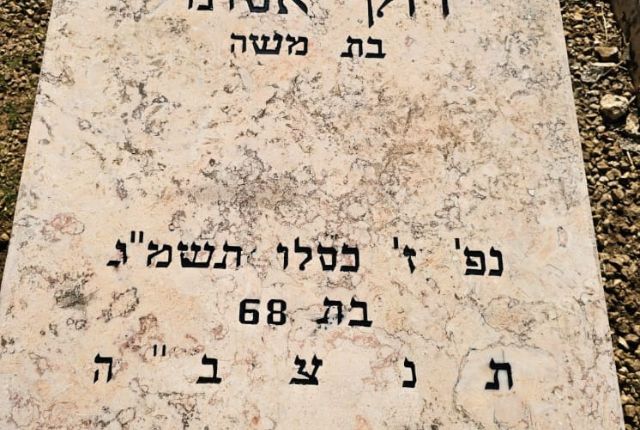 בת משה
נפ' ז' כסלו תשמ"ג
בת 68
ת נ צ ב "ה